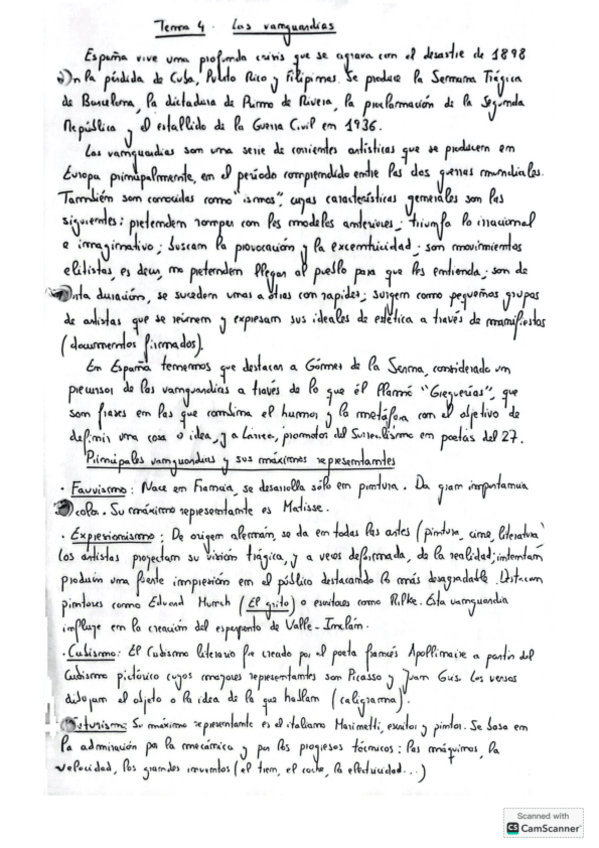 Tema 4. Las vanguardias
España vive una profunda crisis que se agrava con el desastre de 1898
en la pérdida de Cuba, Puerto Rico y Filipinas. Se produce la Semana Trágica
de Barcelona, la dictadura de Primo de Rivera, la proclamación de la Segunda
República y el estallido de la Guerra Civil en 1936.
Las vanguardias son una serie de corrientes artísticas que se producen en
Europa principalmente, en el período comprendido entre las dos guerras mundiales.
También son conocidas como "ismos", cuyas características generales son las
siguientes: pretenden romper con los modelos anteriores; triunfa lo irracional
e imaginativo; buscan la provocación y la excentricidad; son movimientos
elitistas, es decir, no pretenden llegar al pueblo para que los entienda; son de
duración, se suceden unas a otras con rapidez; surgen como pequeños grupos
de artistas que se reúnen y expresan sus ideales de estética a través de manifiestos
(documentos firmados).
En España tenemos que destacar a Gómez de la Serna, considerado un
precursor de las vanguardias a través de lo que él llamó "Greguerías", que
son frases en las que combina el humor y la metáfora con el objetivo de
definir una cosa o idea, y a Larrea, promotor del Surrealismo en poetas del 27.
Principales vanguardias y sus máximos representantes
· Fauvismo: Nace en Francia, se desarrolla sólo en pintura. Da gran importancia
color. Su máximo representante es Matisse.
· Expresionismo: De origen alemán, se da en todas las artes (pintura, cine, literatura)
los artistas proyectan su visión trágica, y a veces deformada, de la realidad; intentan
producir una fuerte impresión en el público destacando lo más desagradable. Destacan
pintores como Edvard Munch (El grito) o escritores como Rilke. Esta vanguardia
influye en la creación del esperpento de Valle-Inclán.
· Cubismo: El Cubismo literario fue creado por el poeta francés Apollinaire a partir del
Cubismo pictórico cuyos mayores representantes son Picasso y Juan Gris. Los versos
dibujan el objeto o la idea de la que hablan (caligrama).
Futurismo: Su máximo representante es el italiano Marinetti, escritor y pintor. Se basa en
la admiración por la mecánica y por los progresos técnicos: las máquinas, la
velocidad, los grandes inventos (el tren, el coche, la electricidad...)
Scanned with
CS CamScanner